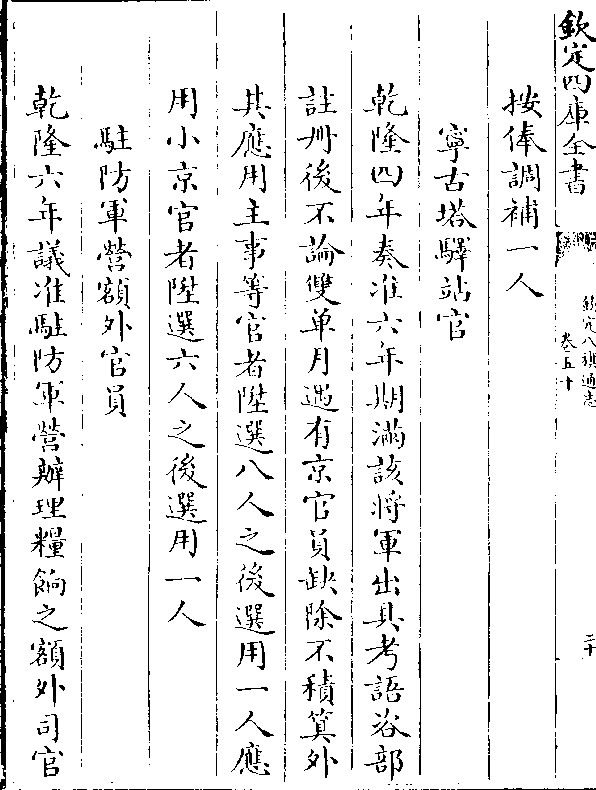 欽定四庫全書
欽定八旗通志
卷五十
二十
按俸調補一人
寧古塔驛站官
乾隆四年奏准六年期滿該將軍出具考語咨部
註冊後不論雙单月遇有京官員缺除不積算外
其應用主事等官者陞選八人之後選用一人應
用小京官者陞選六人之後選用一人
駐防軍營額外官員
乾隆六年議准駐防軍營辦理糧餉之額外司官